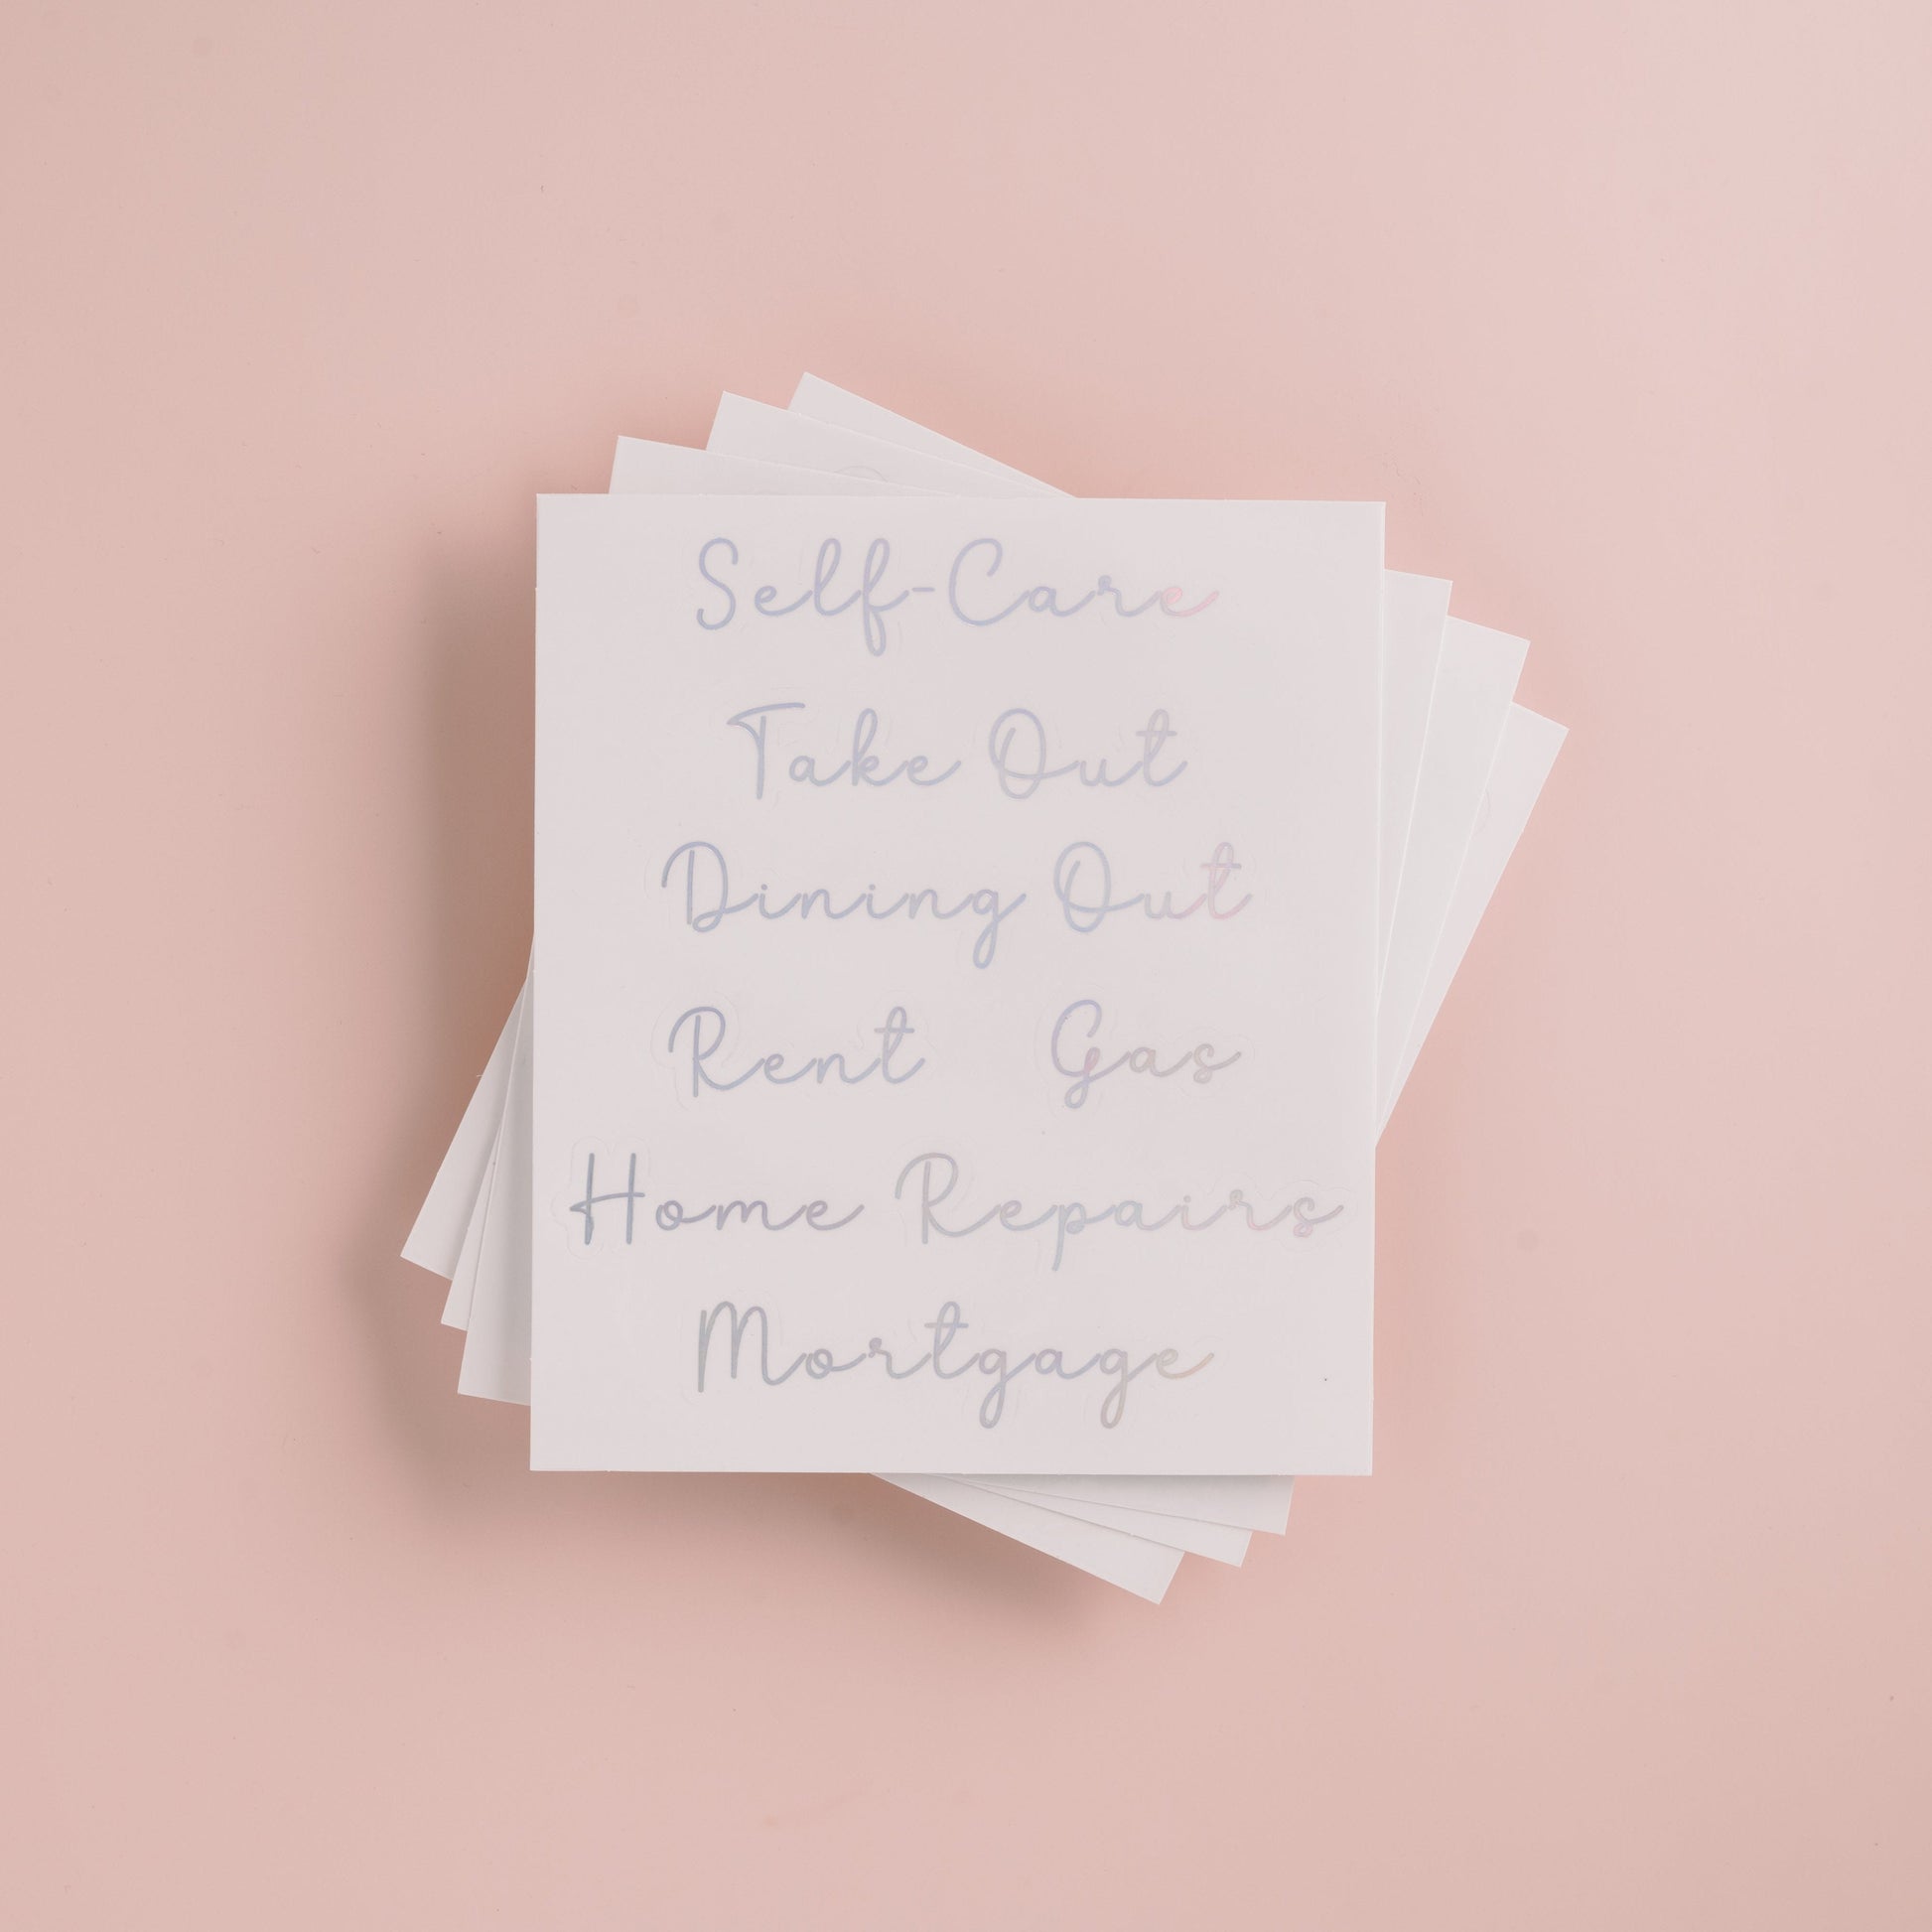 Self-Care
Take Out
Dining Out
Rent Gas
Home Repairs
Mortgage